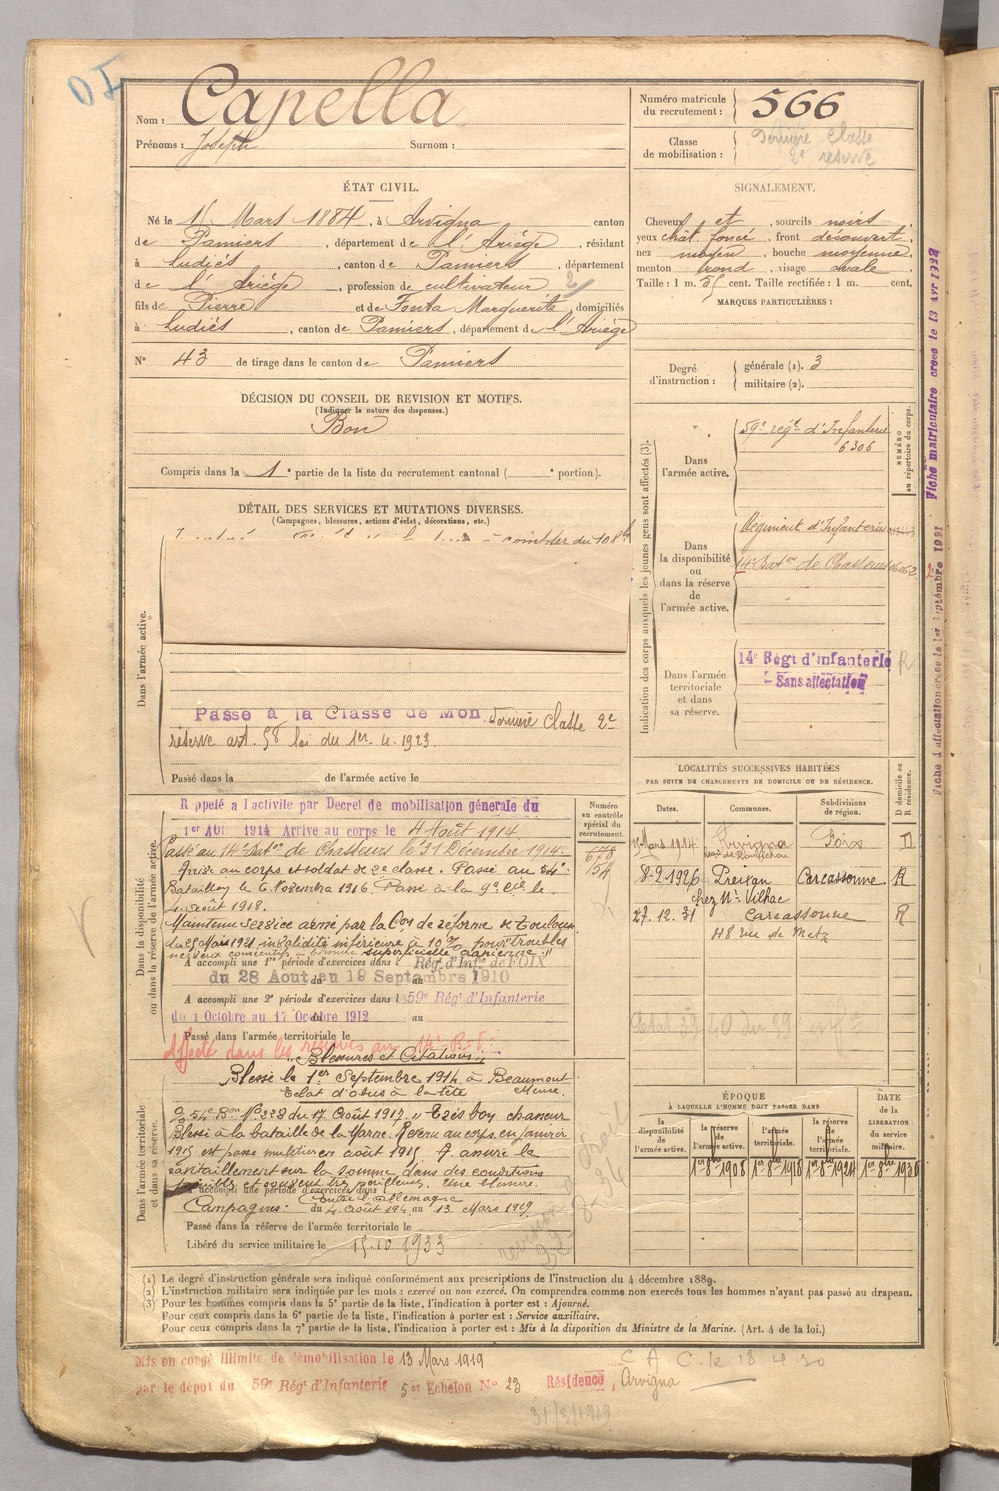 Nom : Capella
Prénoms : Joseph Surnom :
Numéro matricule du recrutement : 566
Classe de mobilisation : Dernière classe 2e réserve
ÉTAT CIVIL.
Né le Mars 1884, à Arvigna canton
de Pamiers, département de l'Ariège, résidant
à Ludiès, canton de Pamiers, département
de l'Ariège, profession de cultivateur 2
fils de Pierre et de Fonta Marguerite domiciliés
à Ludiès, canton de Pamiers, département de l'Ariège
N° 43 de tirage dans le canton de Pamiers
SIGNALEMENT.
Cheveux et, sourcils noirs
yeux chât. foncé, front découvert,
nez moyen, bouche moyenne,
menton rond, visage ovale
Taille : 1 m. 55 cent. Taille rectifiée : 1 m. cent.
MARQUES PARTICULIÈRES :
Degré d'instruction : générale (1). 3
militaire (2).
DÉCISION DU CONSEIL DE REVISION ET MOTIFS.
(Indiquer la nature des dispenses.)
Bon
Compris dans la 1e partie de la liste du recrutement cantonal ( e portion).
DÉTAIL DES SERVICES ET MUTATIONS DIVERSES.
(Campagnes, blessures, actions d'éclat, décorations, etc.)
à compter du 10 8bre
Dans l'armée active.
Passé à la Classe de Mon dernière classe 2e
réserve art. 58 loi du 1er. 4. 1923.
Passé dans la de l'armée active le
Indication des corps auxquels les jeunes gens sont affectés (3).
NUMÉRO au répertoire du corps.
Dans l'armée active.
59e regt d'Infanterie
6306
Dans la disponibilité ou dans la réserve de l'armée active.
Régiment d'Infanterie
14e Baton de Chasseurs
Dans l'armée territoriale et dans sa réserve.
14e Régt d'infanterie R
Sans affectation
Fiche d'affectation créée le 1er Septembre 1921 Fiche matriculaire créée le 13 Avr 1932
Dans la disponibilité ou dans la réserve de l'armée active.
Numéro au contrôle spécial du recrutement.
Rappelé à l'activité par Decret de mobilisation générale du
1er Aou 1914 Arrivé au corps le 4 Août 1914.
Passé au 14e Baton de Chasseurs le 31 Décembre 1914.
Arrivé au corps et soldat de 2e classe. Passé au 54e
Bataillon le 6 Novembre 1916. Passé à la 9e Cie le
4 août 1918.
Maintenu service armé par la Con de réforme de Toulouse
du Mars 1921 invalidité inférieure à 10% pour troubles
nerveux consécutifs à blessure superficielle crânienne "
A accompli une 1re période d'exercices dans Régt d'Inf. de FOIX
du 28 Aout au 19 Septembre 1910
A accompli une 2e période d'exercices dans l 59e Régt d'Infanterie
du 1 Octobre au 17 Octobre 1912 au
Passé dans l'armée territoriale le
Affecté dans les réserves au 14e R.I.
LOCALITÉS SUCCESSIVES HABITÉES
PAR SUITE DE CHANGEMENTS DE DOMICILE OU DE RÉSIDENCE.
Dates. Communes. Subdivisions de région. D domicile ou R résidence.
Mars 1914 Arvigna Foix D
8-2.1926 Preixan Carcassonne R
chez Mr. Vilhac
27.12.31 Carcassonne R
48 rue de Metz
Dans l'armée territoriale et dans sa réserve.
"Blessures et Citations"
Blessé le 1er Septembre 1914 à Beaumont
Eclat d'obus à la tête Meuse.
O. 54e Bon N° 328 du 17 Août 1917. "Très bon chasseur
Blessé à la bataille de la Marne. Revenu au corps en janvier
1915 est passé muletier en août 1915. A assuré le
ravitaillement sur la somme dans des conditions
pénibles et souvent très périlleuses. Une blessure.
A accompli une période d'exercices dans
Campagnes : Contre l'Allemagne
du 4 Août 1914 au 13 Mars 1919
Passé dans la réserve de l'armée territoriale le
Libéré du service militaire le 15.10 1933
ÉPOQUE
À LAQUELLE L'HOMME DOIT PASSER DANS
DATE de la LIBÉRATION du service militaire.
la disponibilité de l'armée active. la réserve de l'armée active. l'armée territoriale. la réserve de l'armée territoriale.
1er 8bre 1908 1er 8bre 1918 1er 8bre 1924 1er 8bre 1930
(1) Le degré d'instruction générale sera indiqué conformément aux prescriptions de l'instruction du 4 décembre 1889.
(2) L'instruction militaire sera indiquée par les mots : exercé ou non exercé. On comprendra comme non exercés tous les hommes n'ayant pas passé au drapeau.
(3) Pour les hommes compris dans la 5e partie de la liste, l'indication à porter est : Ajourné.
Pour ceux compris dans la 6e partie de la liste, l'indication à porter est : Service auxiliaire.
Pour ceux compris dans la 7e partie de la liste, l'indication à porter est : Mis à la disposition du Ministre de la Marine. (Art. 4 de la loi.)
Mis en congé illimité de démobilisation le 13 Mars 1919
C A C. le 18 4 30
par le dépôt du 59e Régt d'Infanterie 5e Echelon N° 23 Résidence, Arvigna
31/3/1919